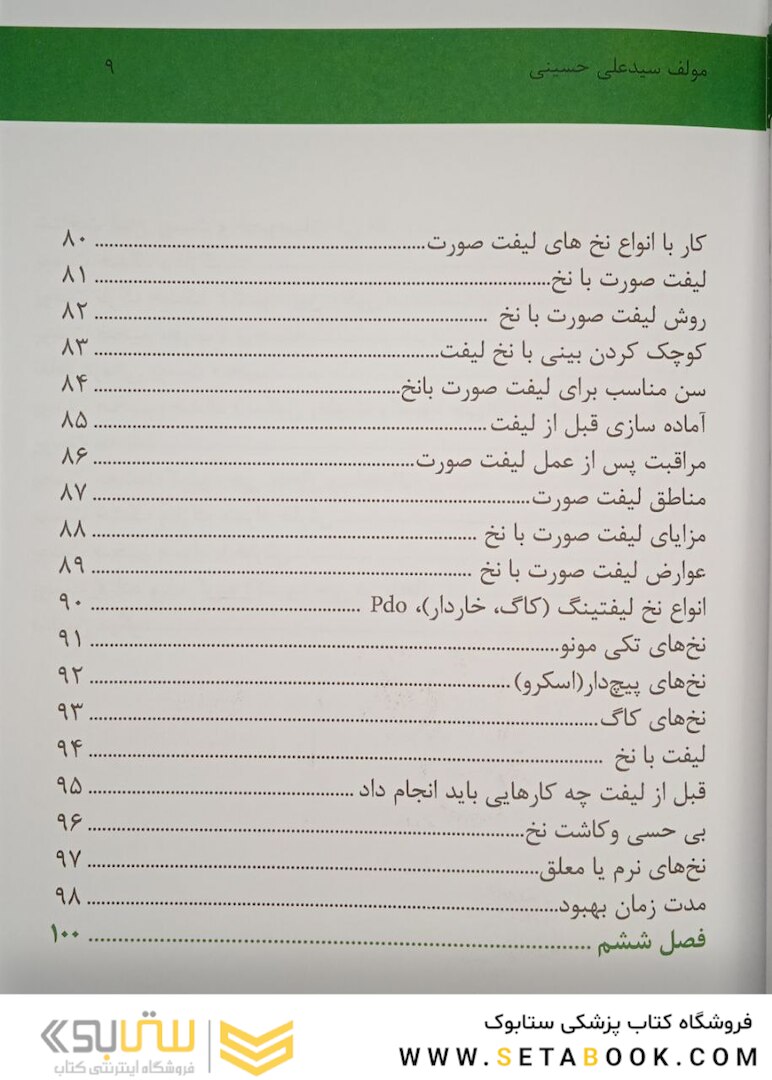 مولف سیدعلی حسینی ۹
کار با انواع نخ های لیفت صورت ۸۰
لیفت صورت با نخ ۸۱
روش لیفت صورت با نخ ۸۲
کوچک کردن بینی با نخ لیفت ۸۳
سن مناسب برای لیفت صورت بانخ ۸۴
آماده سازی قبل از لیفت ۸۵
مراقبت پس از عمل لیفت صورت ۸۶
مناطق لیفت صورت ۸۷
مزایای لیفت صورت با نخ ۸۸
عوارض لیفت صورت با نخ ۸۹
انواع نخ لیفتینگ (کاگ، خاردار)، Pdo ۹۰
نخ‌های تکی مونو ۹۱
نخ‌های پیچ‌دار(اسکرو) ۹۲
نخ‌های کاگ ۹۳
لیفت با نخ ۹۴
قبل از لیفت چه کارهایی باید انجام داد ۹۵
بی حسی وکاشت نخ ۹۶
نخ‌های نرم یا معلق ۹۷
مدت زمان بهبود ۹۸
فصل ششم ۱۰۰
فروشگاه کتاب پزشکی ستابوک
WWW.SETABOOK.COM
ستابوک
فروشگاه اینترنتی کتاب